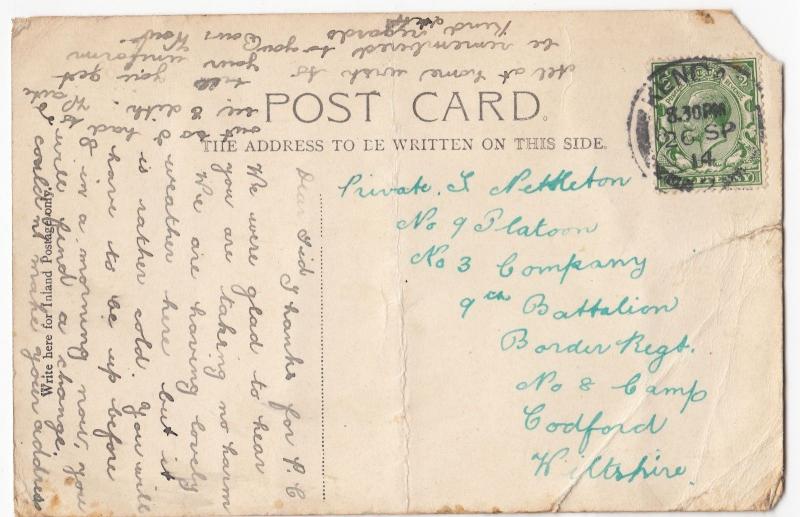 POST CARD.
THE ADDRESS TO BE WRITTEN ON THIS SIDE.
Write here for Inland Postage only.
KENDAL
8.30PM
26 SP
14
Private. S Nettleton
No 9 Platoon
No 3 Company
9th Battalion
Border Regt.
No 8 Camp
Codford
Wiltshire.
Dear Sid Thanks for P.C
We were glad to hear
you are taking no harm
We are having lovely
weather here but it
is rather cold. You will
have to be up before
in a morning now, you
will find a change.
couldnt make your address
out so I had to
till you get
your uniform
All at home wish to
be remembered to you
Kind regards